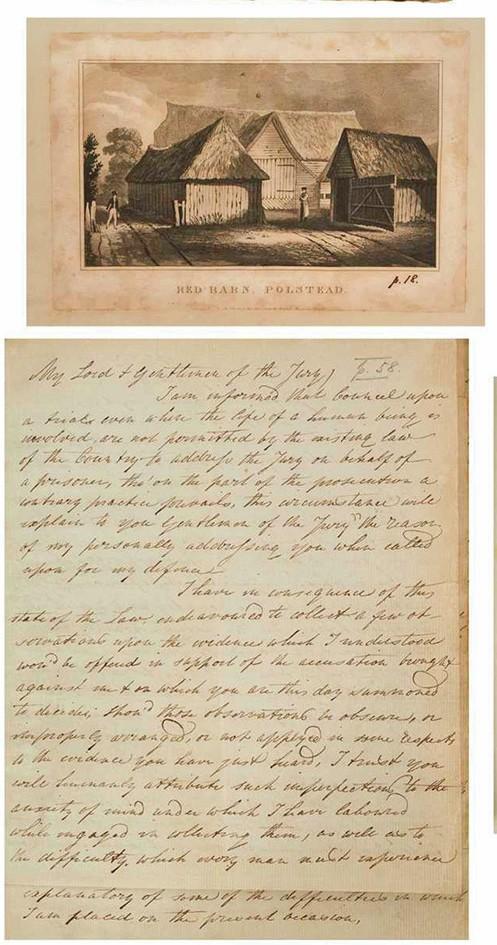 RED BARN, POLSTEAD.
p. 18.
My Lord & Gentlemen of the Jury,
p. 58.
I am informed that Councel upon
a trial, even where the life of a human being is
involved, are not permitted by the existing law
of the Country to address the Jury on behalf of
a prisoner, tho' on the part of the prosecution a
contrary practice prevails, this circumstance will
explain to you Gentlemen of the Jury the reason
of my personally addressing you when called
upon for my defence.
I have in consequence of this
state of the Law endeavoured to collect a few ob-
servations upon the evidence which I understood
would be offered in support of the accusation brought
against me & on which you are this day summoned
to decide; shou'd those observations be obscure, or
improperly arranged, or not applyed in some respects
to the evidence you have just heard, I trust you
will humanely attribute such imperfections to the
anxiety of mind under which I have laboured
while engaged in collecting them, as well as to
the difficulty, which every man must experience
explanatory of some of the difficulties in which
I am placed on the present occasion,